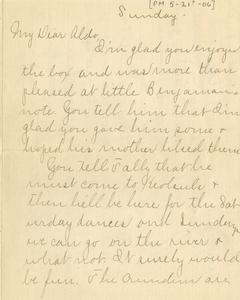 [PM 5-21-06]
Sunday -
My Dear Aldo,
I'm glad you enjoyed
the box and was more than
pleased at little Benjamin's
note. You tell him that I'm
glad you gave him some &
hoped his mother liked them.
You tell that he
must come to &
then he'll be here for the Sat-
urday dances and Sunday
we can go on the river &
what not. It surely would
be fun. The are